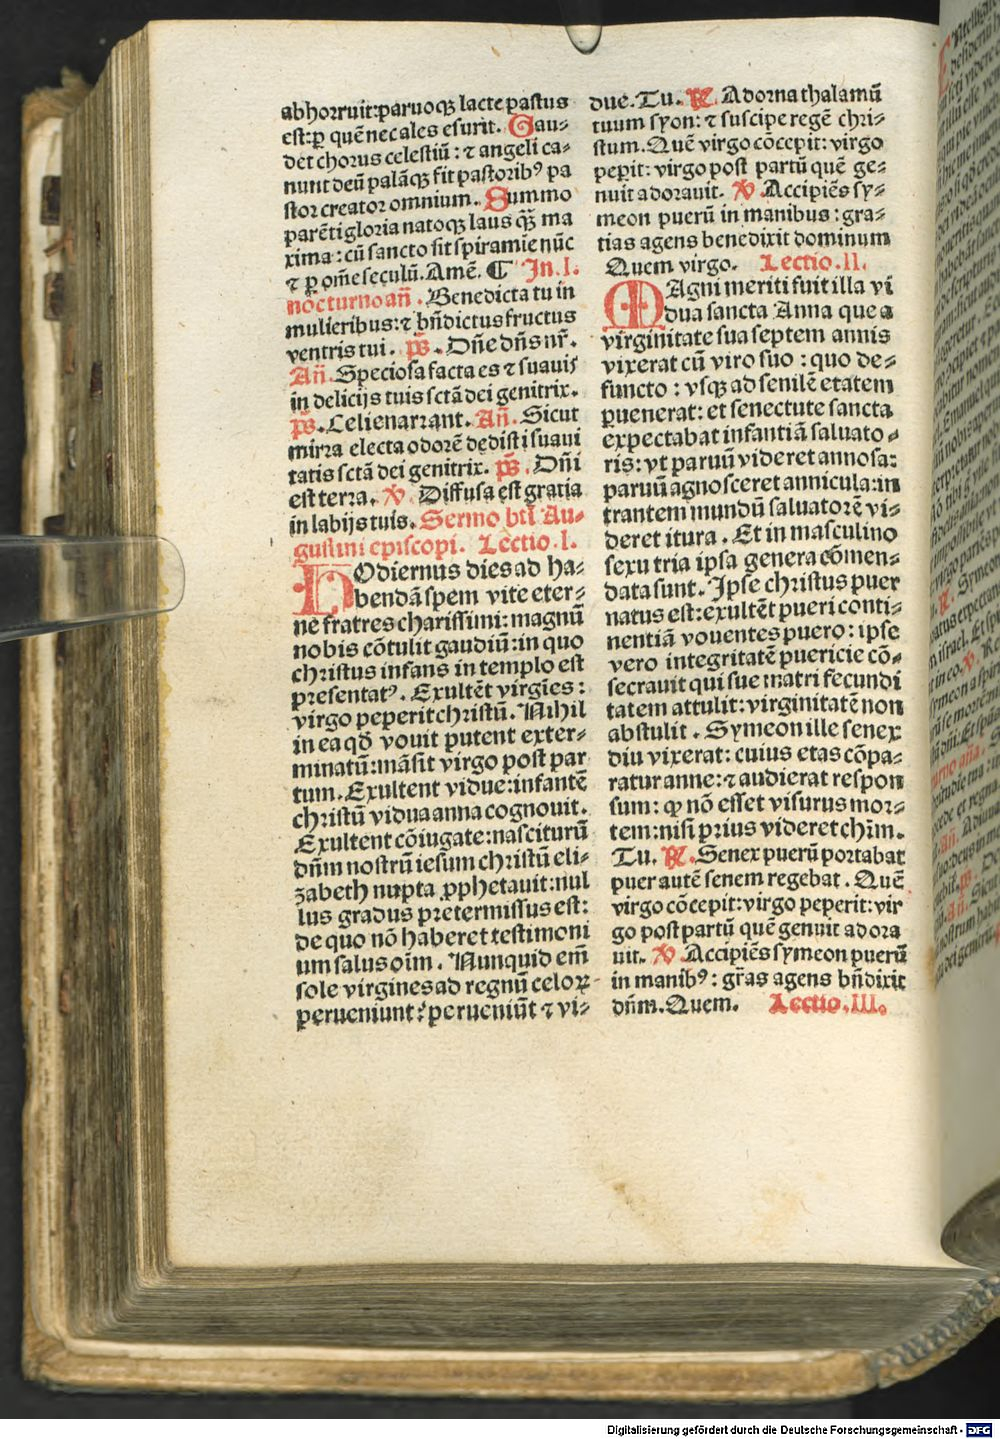 abhorruit:paruoqꝫ lacte pastus
est:ꝑ quē nec ales esurit. Gau⸗
det chorus celestiū : ⁊ angeli ca⸗
nunt deū palāqꝫ fit pastoribꝰ pa
stor creator omnium. Summo
parēti gloria natoqꝫ laus qꝫ̄ ma
xima : cū sancto sit spiramīe nūc
⁊ ꝑ om̄e seculū. Amē. ¶ In .I.
nocturno añ. Benedicta tu in
mulieribus:⁊ bn̄dictus fructus
ventris tui. ps̄. Dn̄e dn̄s nr̄.
Añ. Speciosa facta es ⁊ suauis
in delicijs tuis sctā dei genitrix.
ps̄. Celi enarrant. Añ. Sicut
mirra electa odorē dedisti suaui
tatis sctā dei genitrix. ps̄. Dn̄i
est terra. ℣ Diffusa est gratia
in labijs tuis. Sermo bti Au⸗
gustini episcopi. Lectio .I.
HOdiernus dies ad ha⸗
bendā spem vite eter⸗
ne fratres charissimi: magnū
nobis cōtulit gaudiū: in quo
christus infans in templo est
presentatꝰ. Exultēt virgīes :
virgo peperit christū. Nihil
in ea qd̄ vouit putent exter⸗
minatū: māsit virgo post par
tum. Exultent vidue: infantē
christū vidua anna cognouit.
Exultent cōiugate: nasciturū
dn̄m nostrū iesum christū eli⸗
zabeth nupta ꝓphetauit: nul
lus gradus pretermissus est:
de quo nō haberet testimoni
um salus oīm. Nunquid em̄
sole virgines ad regnū celoꝝ
perueniunt? perueniūt ⁊ vi⸗
due. Tu. ℟ Adorna thalamū
tuum syon: ⁊ suscipe regē chri⸗
stum. Quē virgo cōcepit: virgo
peperit: virgo post partū quē ge⸗
nuit adorauit. ℣ Accipiēs sy⸗
meon puerū in manibus : gra⸗
tias agens benedixit dominum
Quem virgo. Lectio .II.
MAgni meriti fuit illa vi
dua sancta Anna que a
virginitate sua septem annis
vixerat cū viro suo : quo de⸗
functo : vsqꝫ ad senilē etatem
ꝑuenerat: et senectute sancta
expectabat infantiā saluato⸗
ris: vt paruū videret annosa:
paruū agnosceret annicula: in
trantem mundū saluatorē vi⸗
deret itura. Et in masculino
sexu tria ipsa genera cōmen⸗
data sunt. Ipse christus puer
natus est: exultēt pueri conti⸗
nentiā vouentes puero : ipse
vero integritatē puericie cō⸗
secrauit qui sue matri fecundi
tatem attulit: virginitatē non
abstulit. Symeon ille senex
diu vixerat: cuius etas cōpa⸗
ratur anne: ⁊ audierat respon
sum: ꝙ nō esset visurus mor⸗
tem: nisi prius videret chr̄m.
Tu. ℟ Senex puerū portabat
puer autē senem regebat. Quē
virgo cōcepit: virgo peperit: vir
go post partū quē genuit adora
uit. ℣ Accipiēs symeon puerū
in manibꝰ: gr̄as agens bn̄dixit
dn̄m. Quem. Lectio .III.
Digitalisierung gefördert durch die Deutsche Forschungsgemeinschaft - DFG